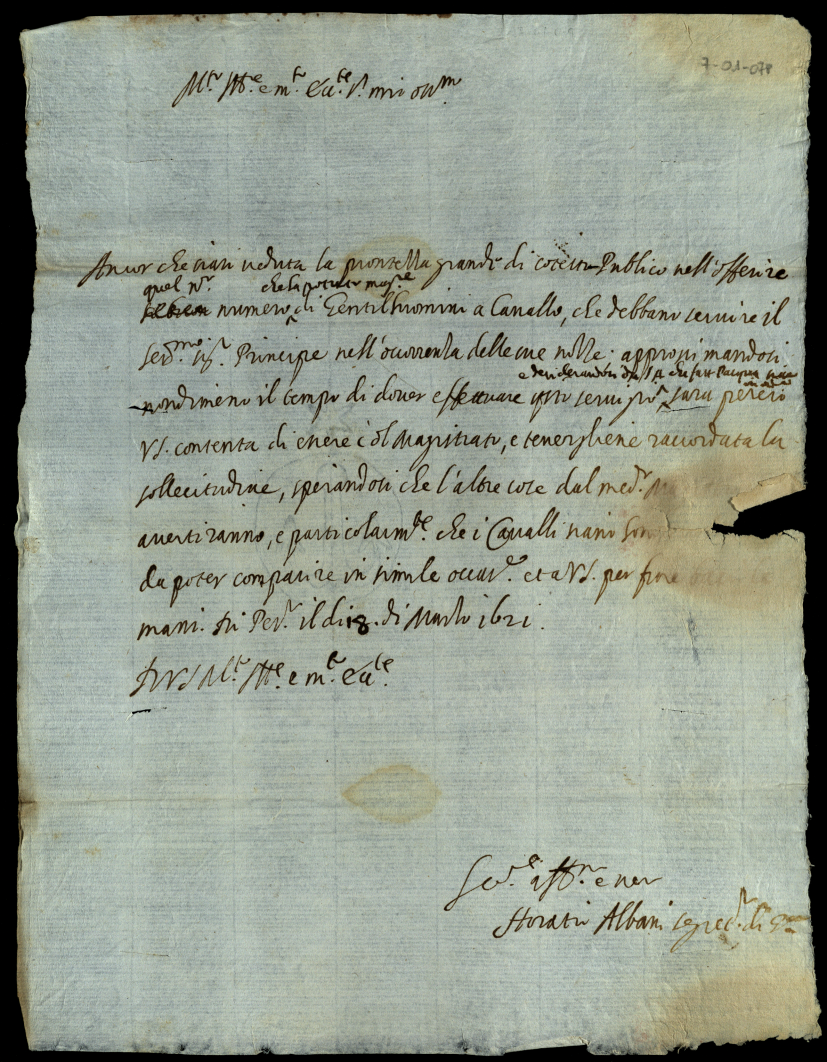 7-01-078
M.to Ill.re e m.to Ecc.te S.r mio oss.mo
Ancor che siasi veduta la prontezza grande di cotesto Publico nell'offerire
quel n.ro che ha potuto mag.re
numero di Gentilhuomini a Cavallo, che debbano servire il
Ser.mo Sig.r Principe nell'occorrenza delle sue nozze: approssimandosi
e desiderandosi da S.A. che fatt Pasqua
nondimeno il tempo di dover effettuare questo servigio, sarà perciò
VS. contenta di essere col Magistrato, e tenergliene raccordata la
sollecitudine, sperandosi che l'altre cose dal med.o
avertiranno, e particolarm.te che i Cavalli siano
da poter comparire in simile occas.e et a VS. per fine
mani. Di Pes.o il di 18. di Marzo 1621.
Di VS M.to Ill.re e m.to Ecc.te
Ser.re aff.mo e ver
Horatio Albani segret.o di